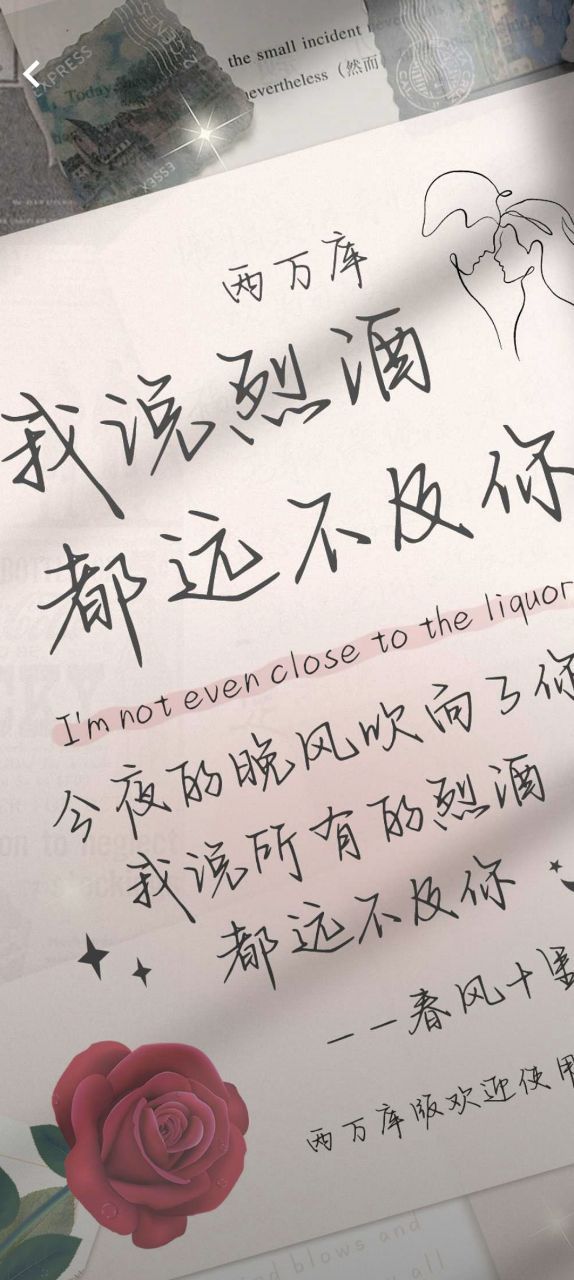 the small incident never
Today
nevertheless（然而
EXPRESS
ESSEX
两万库
我说烈酒
都远不及你
I'm not even close to the liquor
今夜的晚风吹向了你
我说所有的烈酒
都远不及你
——春风十里
两万库版欢迎使用
wind blows and
all